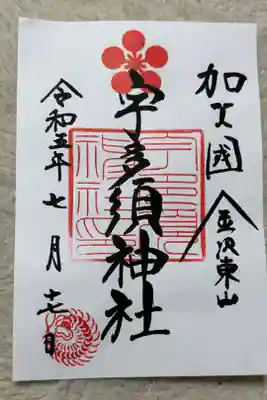 加又國
金沢東山
宇多須神社
令和五年七月十七日